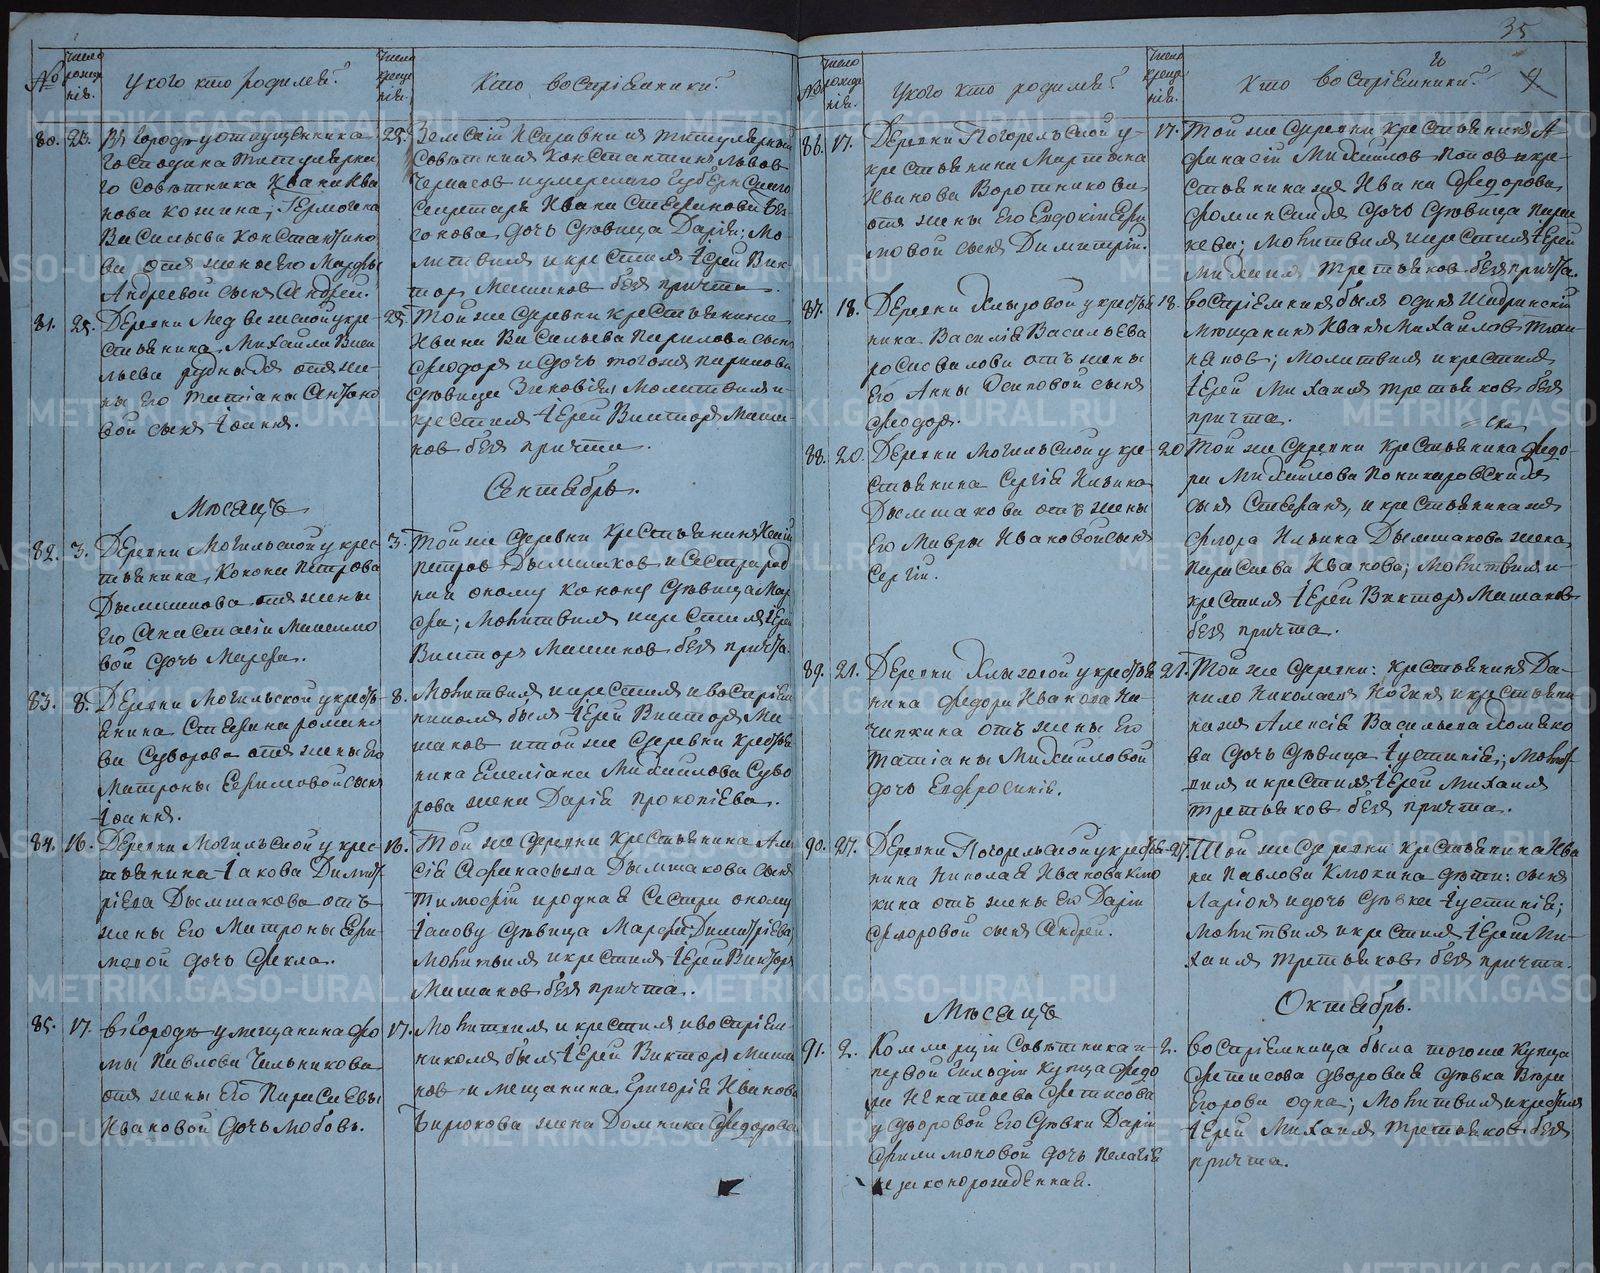 35
№
Число рождения.
У кого кто родился?
Число крещения.
Кто восприемники?
80. 23.
Въ городѣ у отпущенника
господина титулярна
го совѣтника Ивана Ива
нова Кожина, Гермогена
Васильева Константино
ва отъ жены его Марѳы
Андреевой сынъ Андрей.
25.
Земскій Исправникъ титулярный
совѣтникъ Константинъ Львовъ
Черкасов и умершаго Губернскаго
секретаря Ивана Стефанова
дочь дѣвица Дарія; Мо-
литвилъ и крестилъ Іерей Вик-
торъ Машановъ безъ причта.
81. 25.
Деревни Медвежской у кре-
стьянина Михаила Васи
льева отъ же-
ны его Татіаны Антоно
вой сынъ Іоаннъ.
25.
Той же деревни крестьянина
Ивана Васильева Парилова сынъ
Ѳеодоръ и дочь того же Парилова
дѣвица Зиновія; Молитвилъ и
крестилъ Іерей Викторъ Маша-
новъ безъ причта.
Мѣсяцъ
Сентябрь.
82. 3.
Деревни Могильской у крес-
тьянина Конона Петрова
Дымшакова отъ жены
его Анастасіи
вой дочь Марѳа.
3.
Той же деревни крестьянинъ
Петровъ Дымшаковъ и сестра род
ная оному Конону дѣвица Мар
ѳа; Молитвилъ и крестилъ Іерей
Викторъ Машановъ безъ причта.
83. 8.
Деревни Могильской у кресть-
янина Стефана Романо
ва Суворова отъ жены его
Матроны Ефимовой сынъ
Іоаннъ.
8.
Молитвилъ и крестилъ и воспріем
никомъ былъ Іерей Викторъ Ма
шановъ и той же деревни крестья
нина Емеліана Михайлова Суво
рова жена Дарія Прокопіева.
84. 16.
Деревни Могильской у крес-
тьянина Іакова Димит
ріева Дымшакова отъ
жены его Матроны Ефи-
мовой дочь Ѳекла.
16.
Той же деревни крестьянина Але
сія Аѳанасьева Дымшакова сынъ
Тимоѳей и родная сестра оному
Іакову дѣвица Марѳа Димитріева
Молитвилъ и крестилъ Іерей Викторъ
Машановъ безъ причта.
85. 17.
Въ городѣ у мещанина Ѳо
мы Павлова Чильникова
отъ жены его Параскевы
Ивановой дочь Любовь.
17.
Молитвилъ и крестилъ и воспріем-
никомъ былъ Іерей Викторъ Маша
новъ и мещанина Григорія Иванова
Бирюкова жена Домника Ѳедорова
№
Число рождения.
У кого кто родился?
Число крещения.
Кто воспріемники?
86. 17.
Деревни Погорельской у
крестьянина Мартына
Иванова Воротникова
отъ жены его Евдокіи Ефи
мовой сынъ Димитрій.
17.
Той же деревни крестьянинъ А-
ѳанасій Михайловъ Поповъ и кре-
стьянина же Ивана Ѳедорова
дочь дѣвица Парас
кева; Молитвилъ и крестилъ Іерей
Михаилъ Третьяковъ безъ причта.
87. 18.
Деревни Хлызовой у крестья
нина Василія Васильева
отъ жены
его Анны Осиповой сынъ
Ѳеодоръ.
18.
Воспріемникъ былъ одинъ Шадринскій
мещанинъ Иванъ Михайловъ
Молитвилъ и крестилъ
Іерей Михаилъ Третьяковъ безъ
причта.
88. 20.
Деревни Могильской у кре-
стьянина Сергія Ильина
Дымшакова отъ жены
его Мавры Ивановой сынъ
Сергій.
20.
Той же деревни крестьянина Ѳедо-
ра Михайлова
сынъ Стефанъ, и крестьянина же
Флора Ильина Дымшакова жена
Параскева Иванова; Молитвилъ и
крестилъ Іерей Викторъ Машановъ
безъ причта.
89. 21.
Деревни Хлызовой у крестья
нина Ѳедора Иванова
отъ жены его
Татіаны Михайловой
дочь Евфросинія.
21.
Той же деревни: крестьянинъ Да-
нило Николаевъ и крестьяни
на же Алексія Васильева Хомяко
ва дочь дѣвица Іустинія; Молит
вилъ и крестилъ Іерей Михаилъ
Третьяковъ безъ причта.
90. 27.
Деревни Погорельской у крестья
нина Николая Иванова Клю
кина отъ жены его Даріи
Ѳедоровой сынъ Андрей.
27.
Той же деревни крестьянина Ива
на Павлова Клюкина дѣти: сынъ
Ларіонъ и дочь дѣвка Іустинія;
Молитвилъ и крестилъ Іерей Ми-
хаилъ Третьяковъ безъ причта.
Мѣсяцъ
Октябрь.
91. 2.
Коммерціи Совѣтника и
первой гильдіи купца Ѳедо
ра Игнатьева Ѳетисова
у дворовой его дѣвки Даріи
Филимоновой дочь Пелагія
незаконорожденная.
2.
Воспріемница была того же купца
Ѳетисова дворовая дѣвка Варва
Егорова одна; Молитвилъ и крестилъ
Іерей Михаилъ Третьяковъ безъ
причта.
METRIKI.GASO-URAL.RU